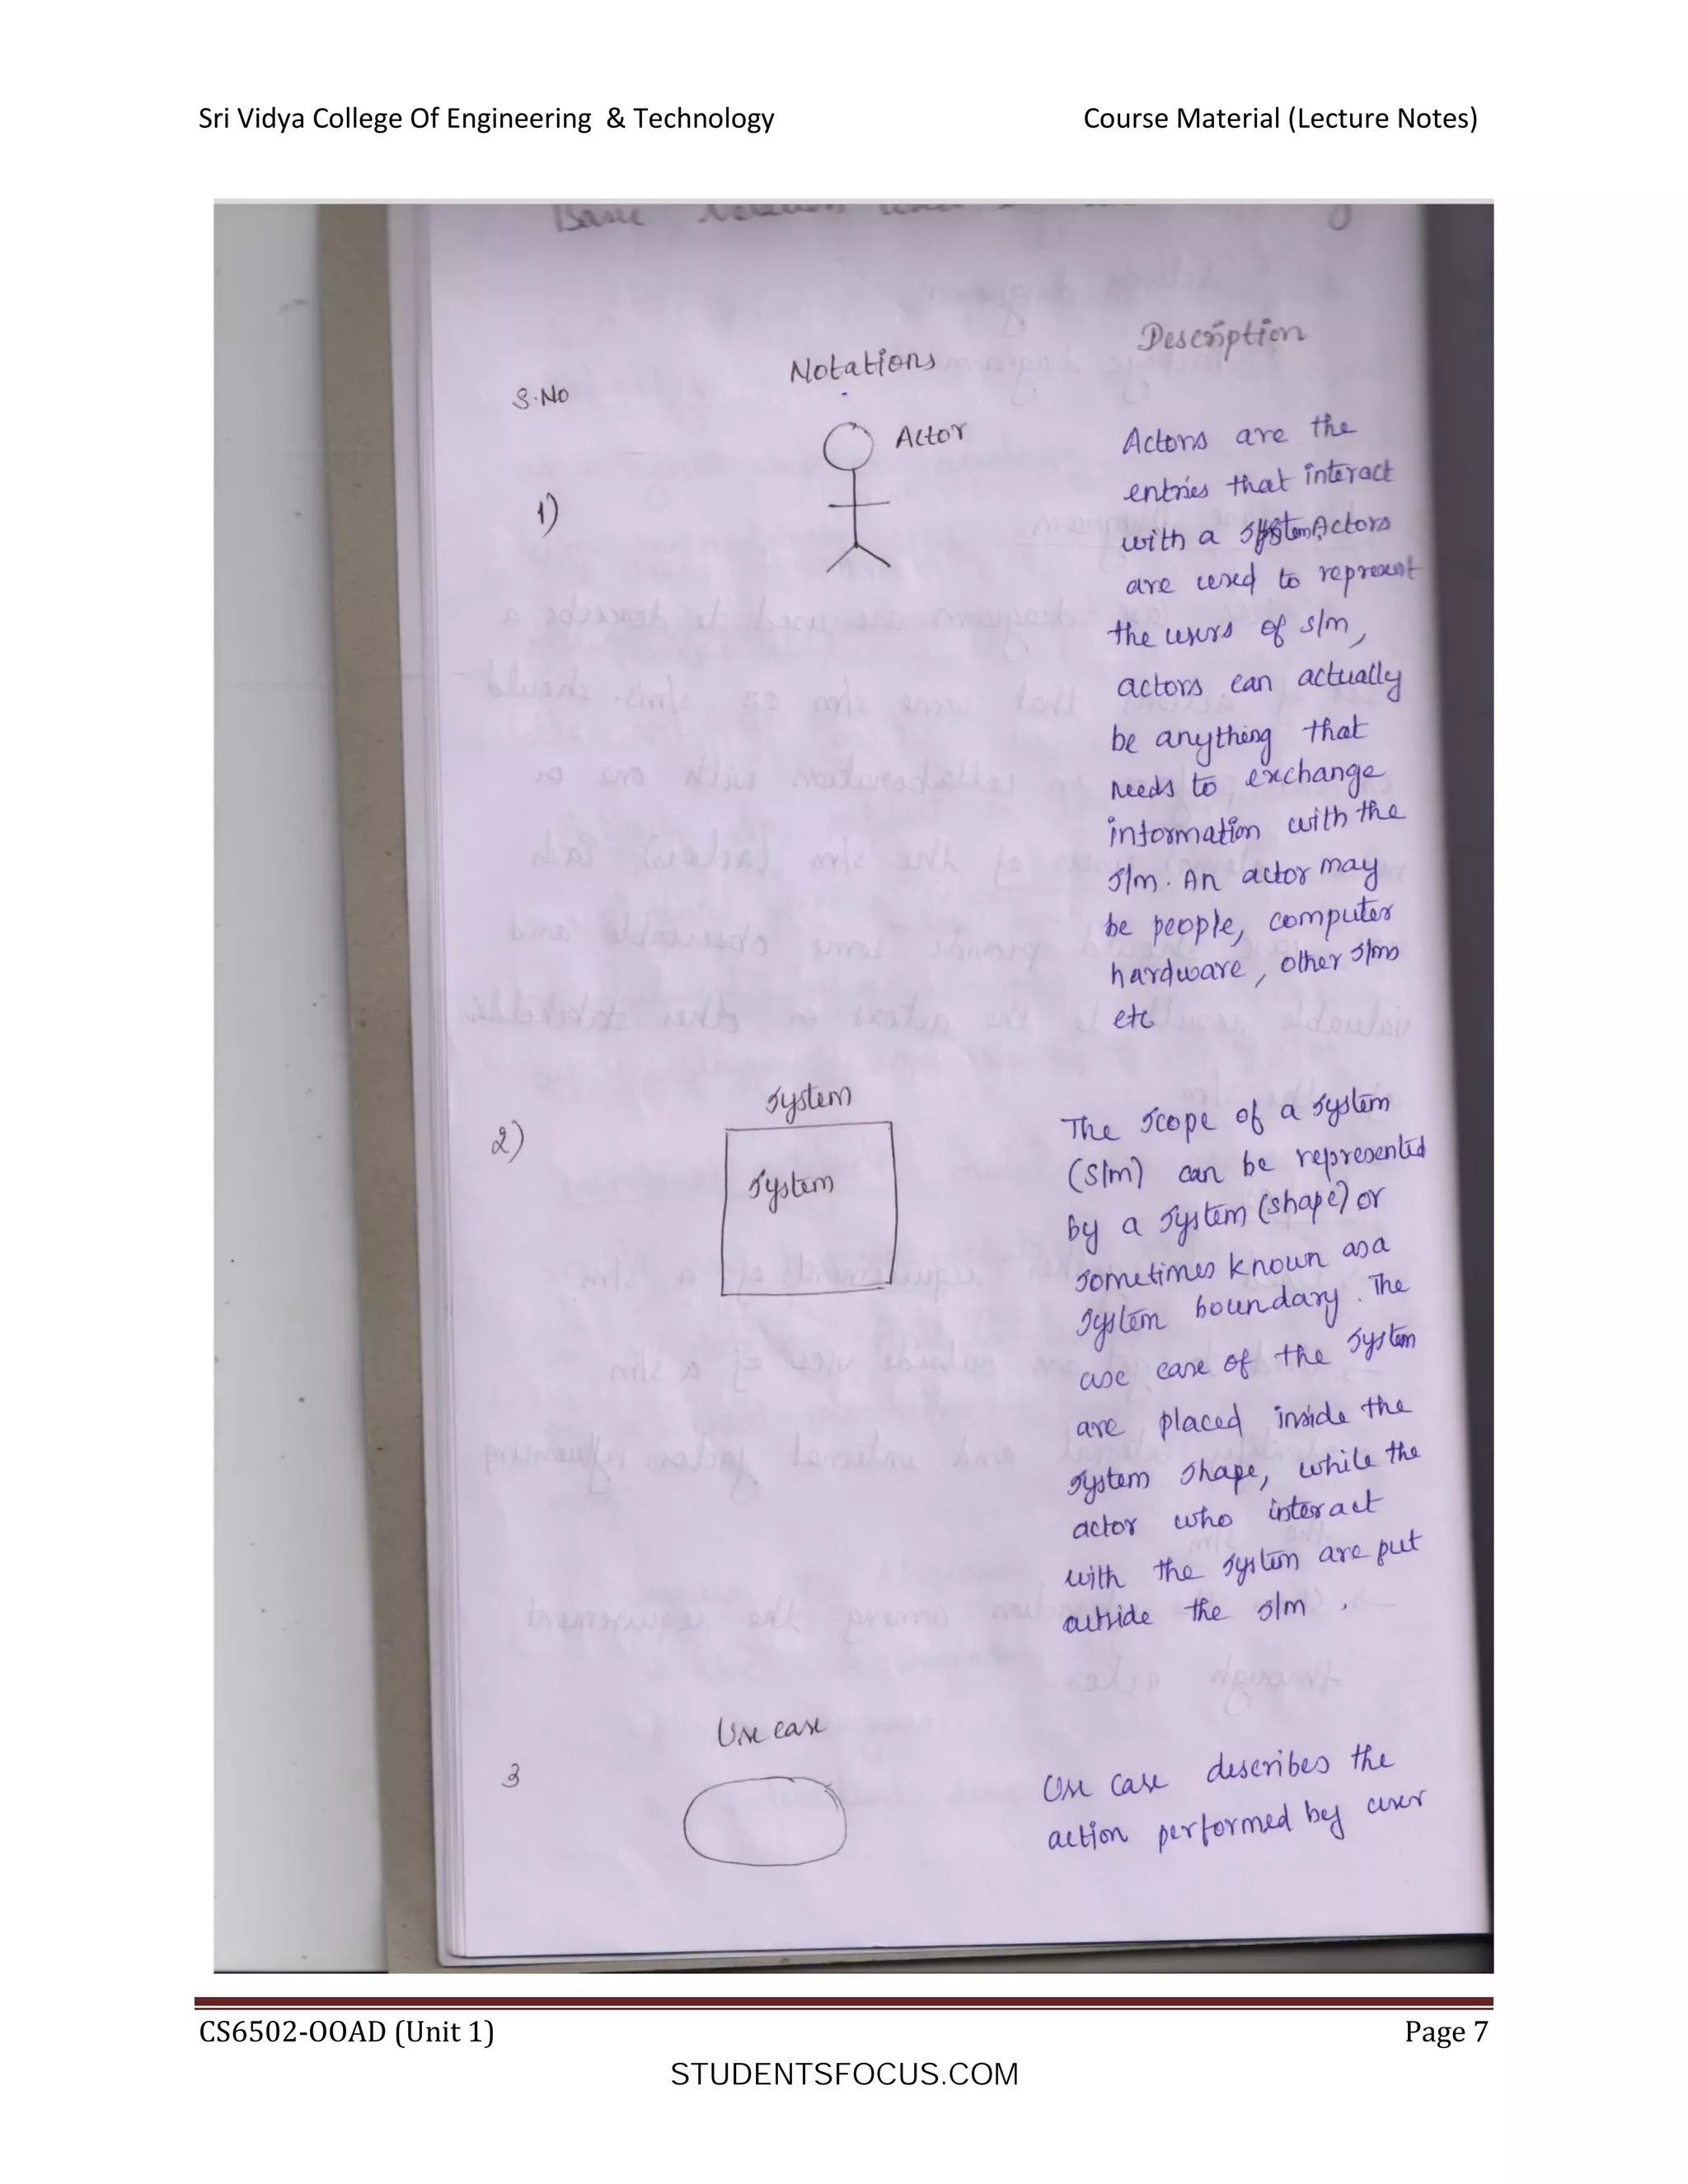 Sri Vidya College Of Engineering & Technology Course Material (Lecture Notes)
Basic Notations used
S.No Notations Description
1) Actor
Actors are the
entries that interact
with a system, Actors
are used to represent
the users of s/m,
actors can actually
be anything that
needs to exchange
information with the
s/m. An actor may
be people, computer
hardware, other s/ms
etc
2) System
System
The scope of a system
(s/m) can be represented
by a system (shape) or
sometimes known as a
system boundary. The
use case of the system
are placed inside the
system shape, while the
actor who interact
with the system are put
outside the s/m.
3 Use case
Use case describes the
action performed by user
CS6502-OOAD (Unit 1) Page 7
STUDENTSFOCUS.COM